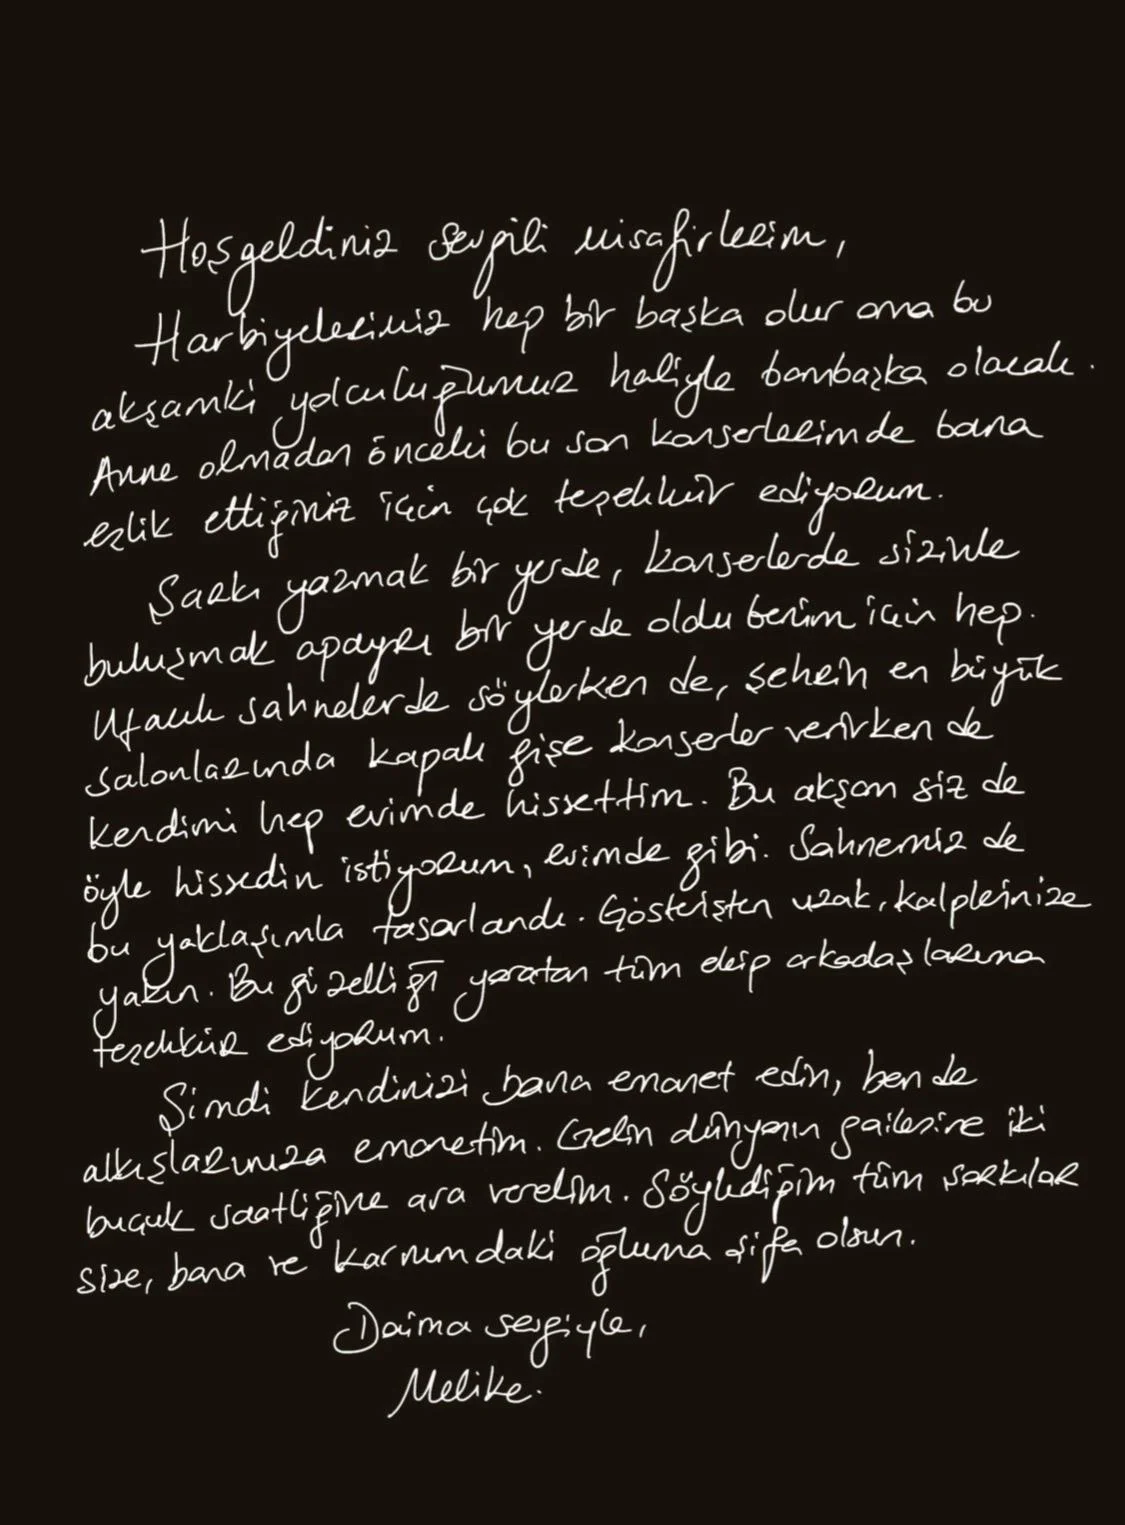 Hoşgeldiniz sevgili misafirlerim,
Harbiyelerimiz hep bir başka olur ama bu
akşamki yolculuğumuz haliyle bambaşka olacak.
Anne olmadan önceki bu son konserlerimde bana
eşlik ettiğiniz için çok teşekkür ediyorum.
Şarkı yazmak bir yerde, konserlerde sizinle
buluşmak apayrı bir yerde oldu benim için hep.
Ufacık sahnelerde söylerken de, şehrin en büyük
salonlarında kapalı gişe konserler verirken de
kendimi hep evimde hissettim. Bu akşam siz de
öyle hissedin istiyorum, evimde gibi. Sahnemiz de
bu yaklaşımla tasarlandı. Gösterişten uzak, kalplerinize
yakın. Bu güzelliği yaratan tüm ekip arkadaşlarıma
teşekkür ediyorum.
Şimdi kendinizi bana emanet edin, ben de
alkışlarınıza emanetim. Gelin dünyanın gailesine iki
buçuk saatliğine ara verelim. Söylediğim tüm şarkılar
size, bana ve karnımdaki oğluma şifa olsun.
Daima sevgiyle,
Melike.